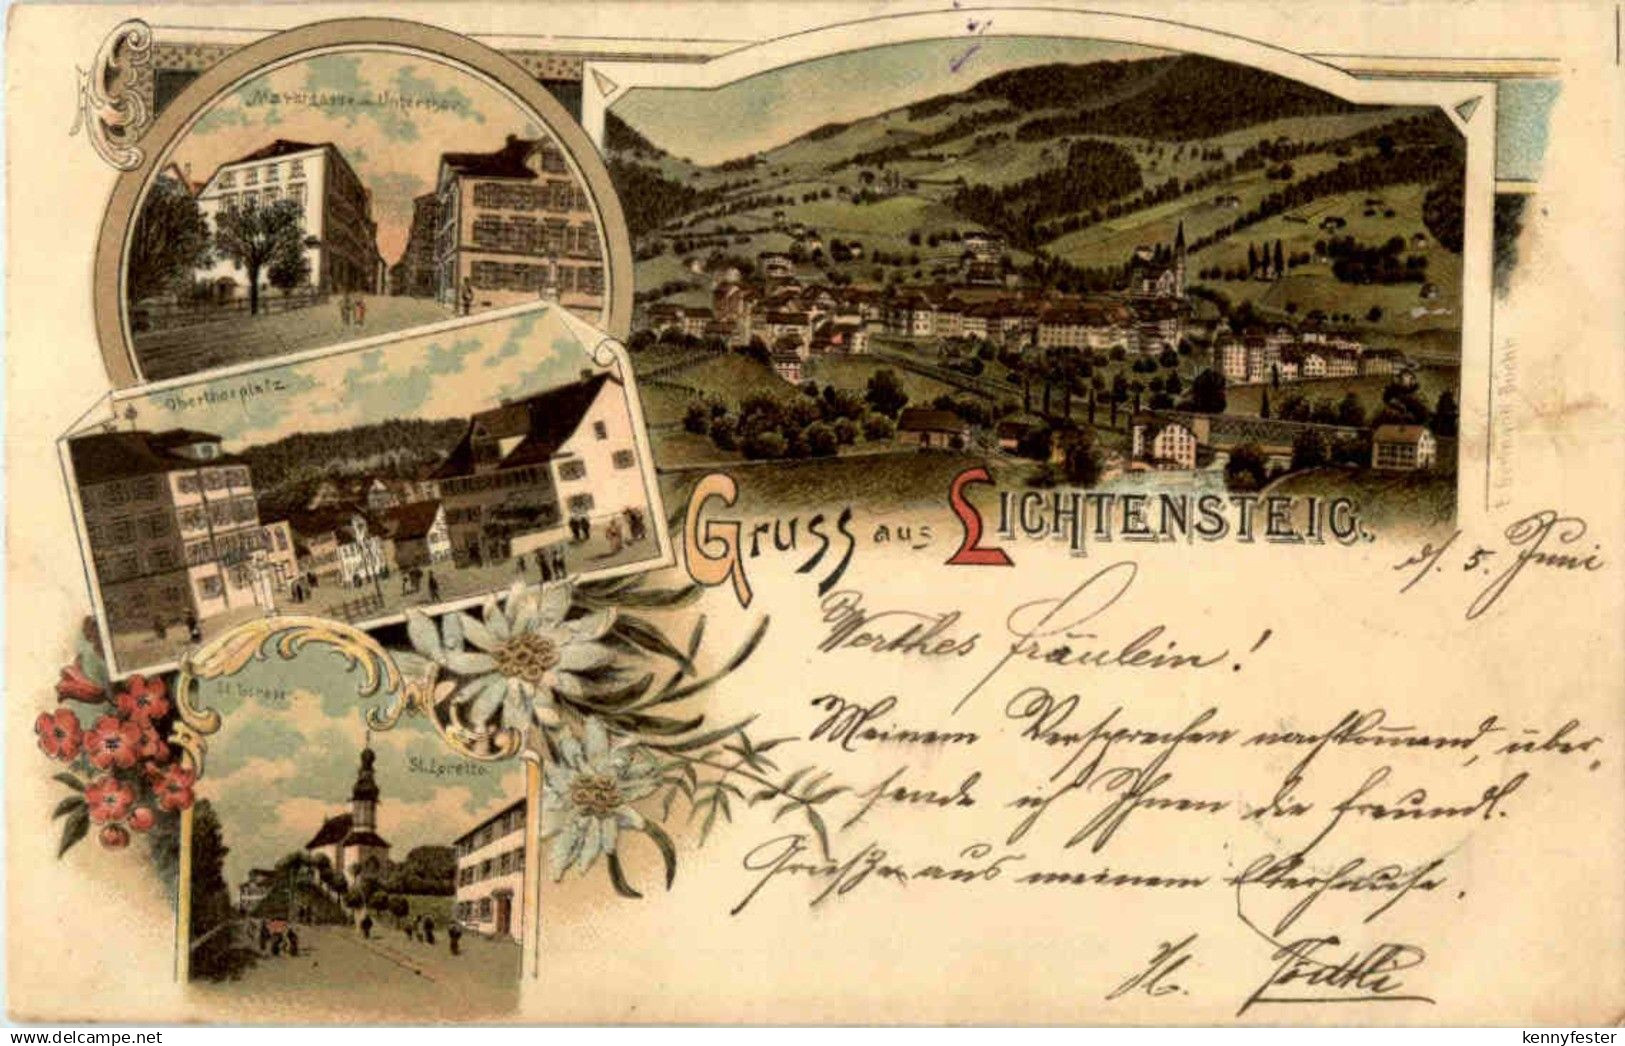 Marktgasse u. Unterthor
Oberthorplatz
St. Loretto
St. Loretto
Gruss aus LICHTENSTEIG.
d. 5. Juni
Werthes Fräulein!
Meinem Versprechen nachkommend, über-
sende ich Ihnen die freundl.
Grüße aus meinem Elternhause.
kennyfester